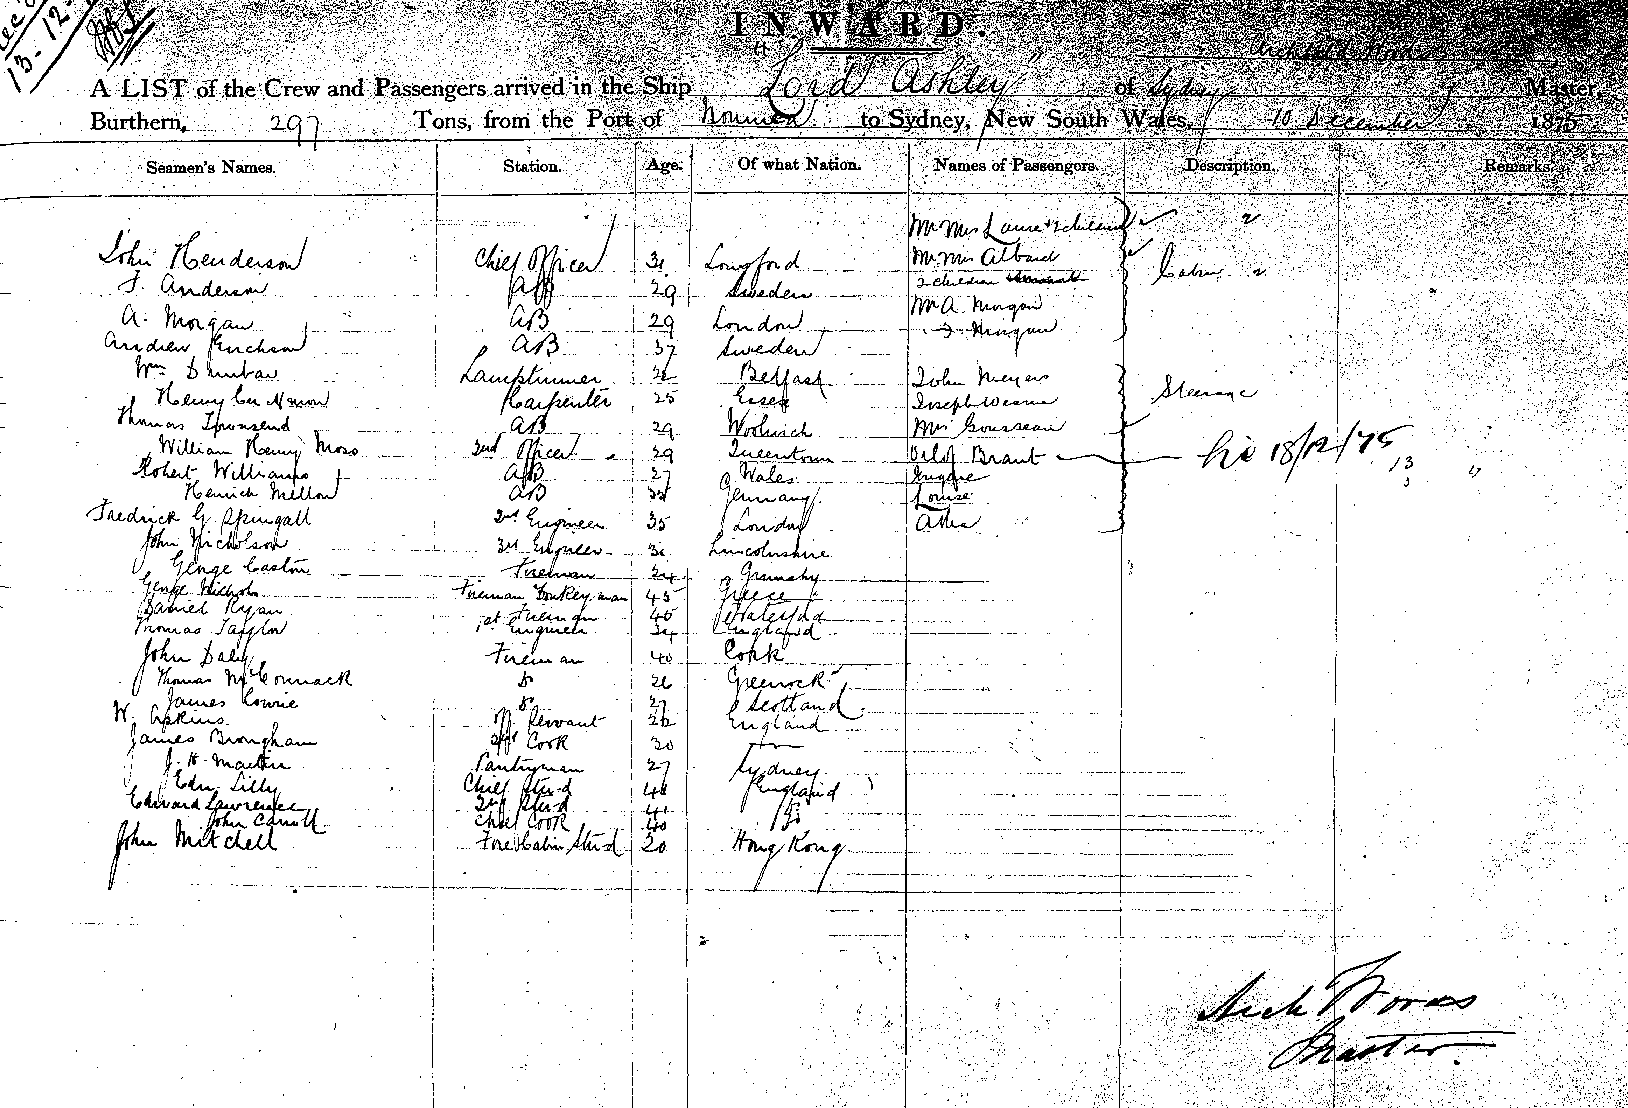 13-12-
INWARD.
A LIST of the Crew and Passengers arrived in the Ship "Lord Ashley" of Sydney Master,
Burthern, 297 Tons, from the Port of Noumea to Sydney, New South Wales, 10 December 1875
Seamen's Names. Station. Age. Of what Nation. Names of Passengers. Description. Remarks.
Mr Mrs Laure & 2 children
John Henderson Chief Officer 31 Longford Mr Mrs Albard Cabin
F. Anderson AB 29 Sweden 2 children
A. Morgan AB 29 London Mr A. Morgan
Andrew AB 37 Sweden Morgan
Wm Dunbar Lamptrimmer Belfast John Meyers
Henry Carpenter 25 Essex Joseph Steerage
Thomas Townsend AB 29 Woolwich Mrs Gousseau
William Henry Moss 2nd Officer 29 Queenstown Brant 18/12/75
Robert Williams AB 27 Wales Eugene 13 "
Henrich AB Germany Louise
Fredrick G. Springall 2nd Engineer 35 London
John Nicholson 3rd Engineer Lincolnshire
George Caston Fireman 24 Grimsby
George Nichols Fireman Donkeyman 45 Greece
Daniel Ryan Fireman 45 Waterford
Thomas Taylor 1st Engineer 34 England
John Daley Fireman 40 Cork
Thomas McCormack Do Greenock
James Cowie Do 27 Scotland
W. Servant England
James Brougham Cook 30
J. H. Martin Pantryman 27 Sydney
Edn Lilly Chief Stwd England
Edward Lawrence 2nd Stwd Do
John Carroll Chief Cook 40 Do
John Mitchell Fore Cabin Stwd 20 Hong Kong
Arch
Master.